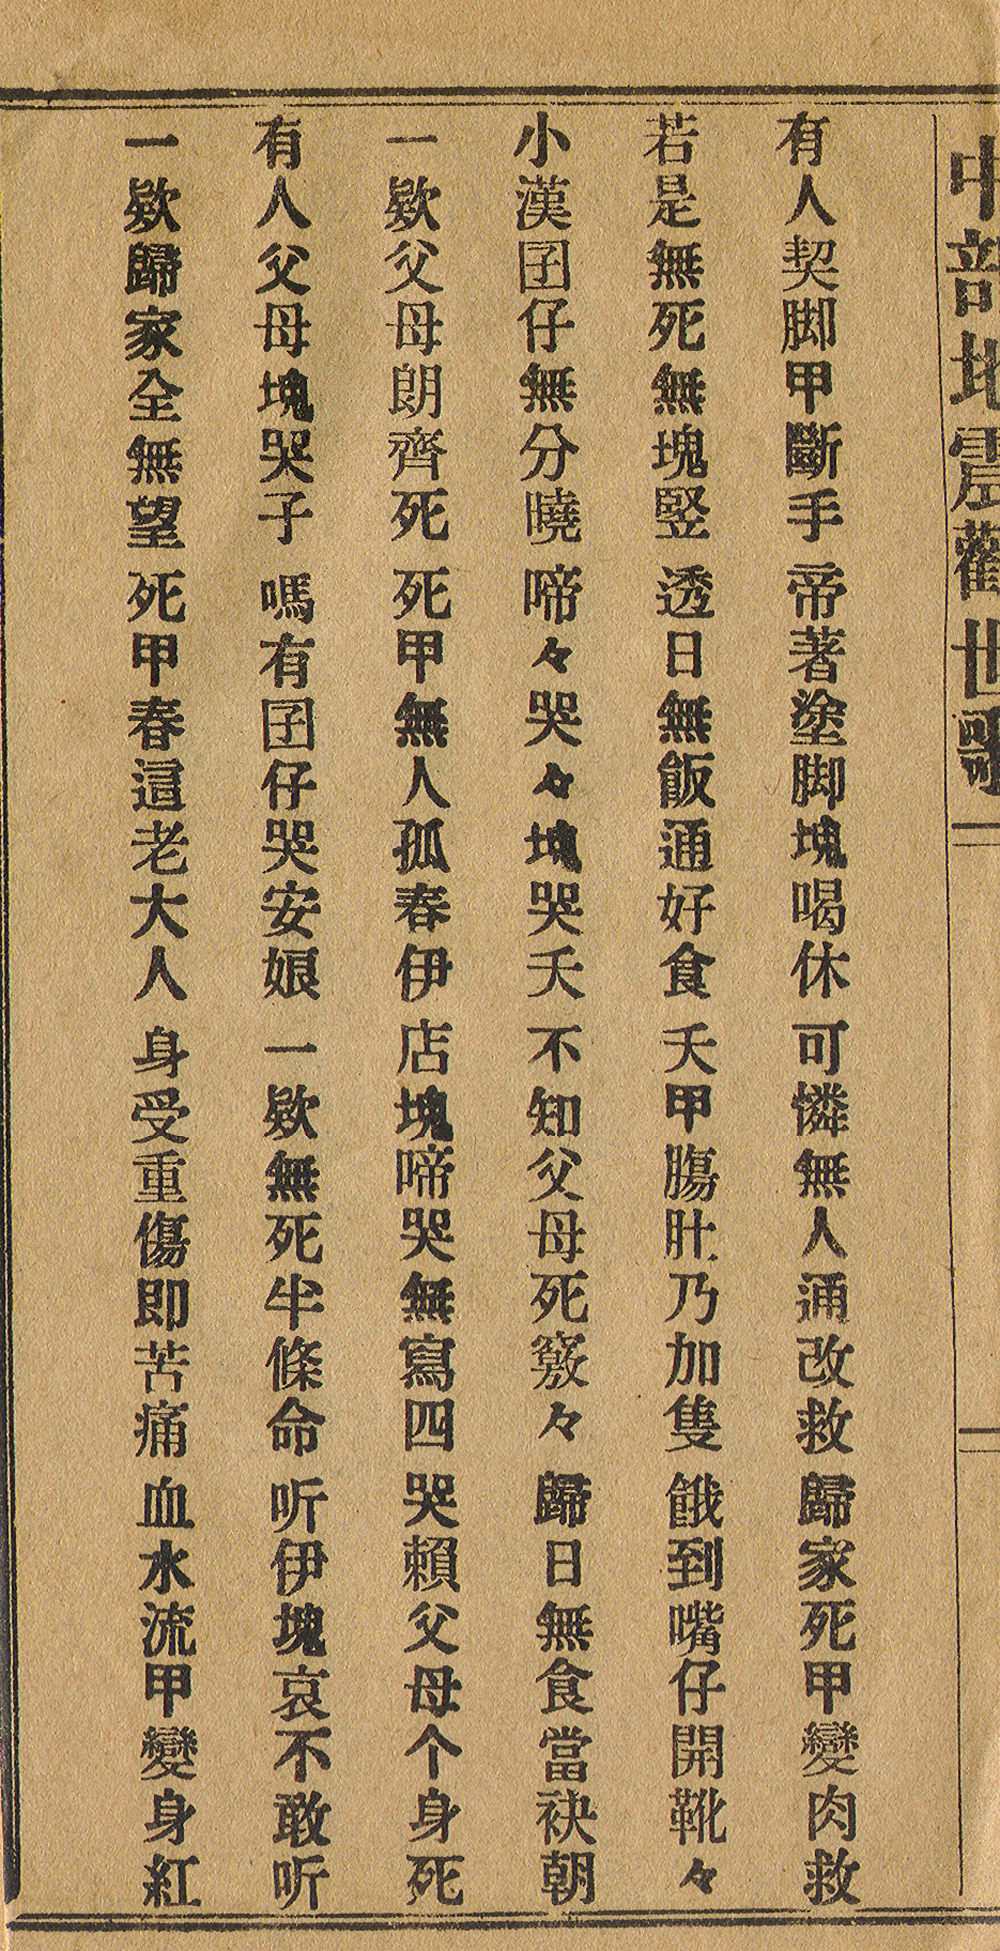 中部地震勸世歌 一
有人契脚甲斷手 帝著塗脚塊喝休 可憐無人通改救 歸家死甲變肉救
若是無死無塊竪 透日無飯通好食 夭甲腸肚乃加隻 餓到嘴仔開靴々
小漢囝仔無分曉 啼々哭々塊哭夭 不知父母死竅々 歸日無食當袂朝
一欵父母朗齊死 死甲無人孤春伊 店塊啼哭無寫四 哭賴父母个身死
有人父母塊哭子 嗎有囝仔哭安娘 一欵無死半條命 听伊塊哀不敢听
一欵歸家全無望 死甲春這老大人 身受重傷即苦痛 血水流甲變身紅